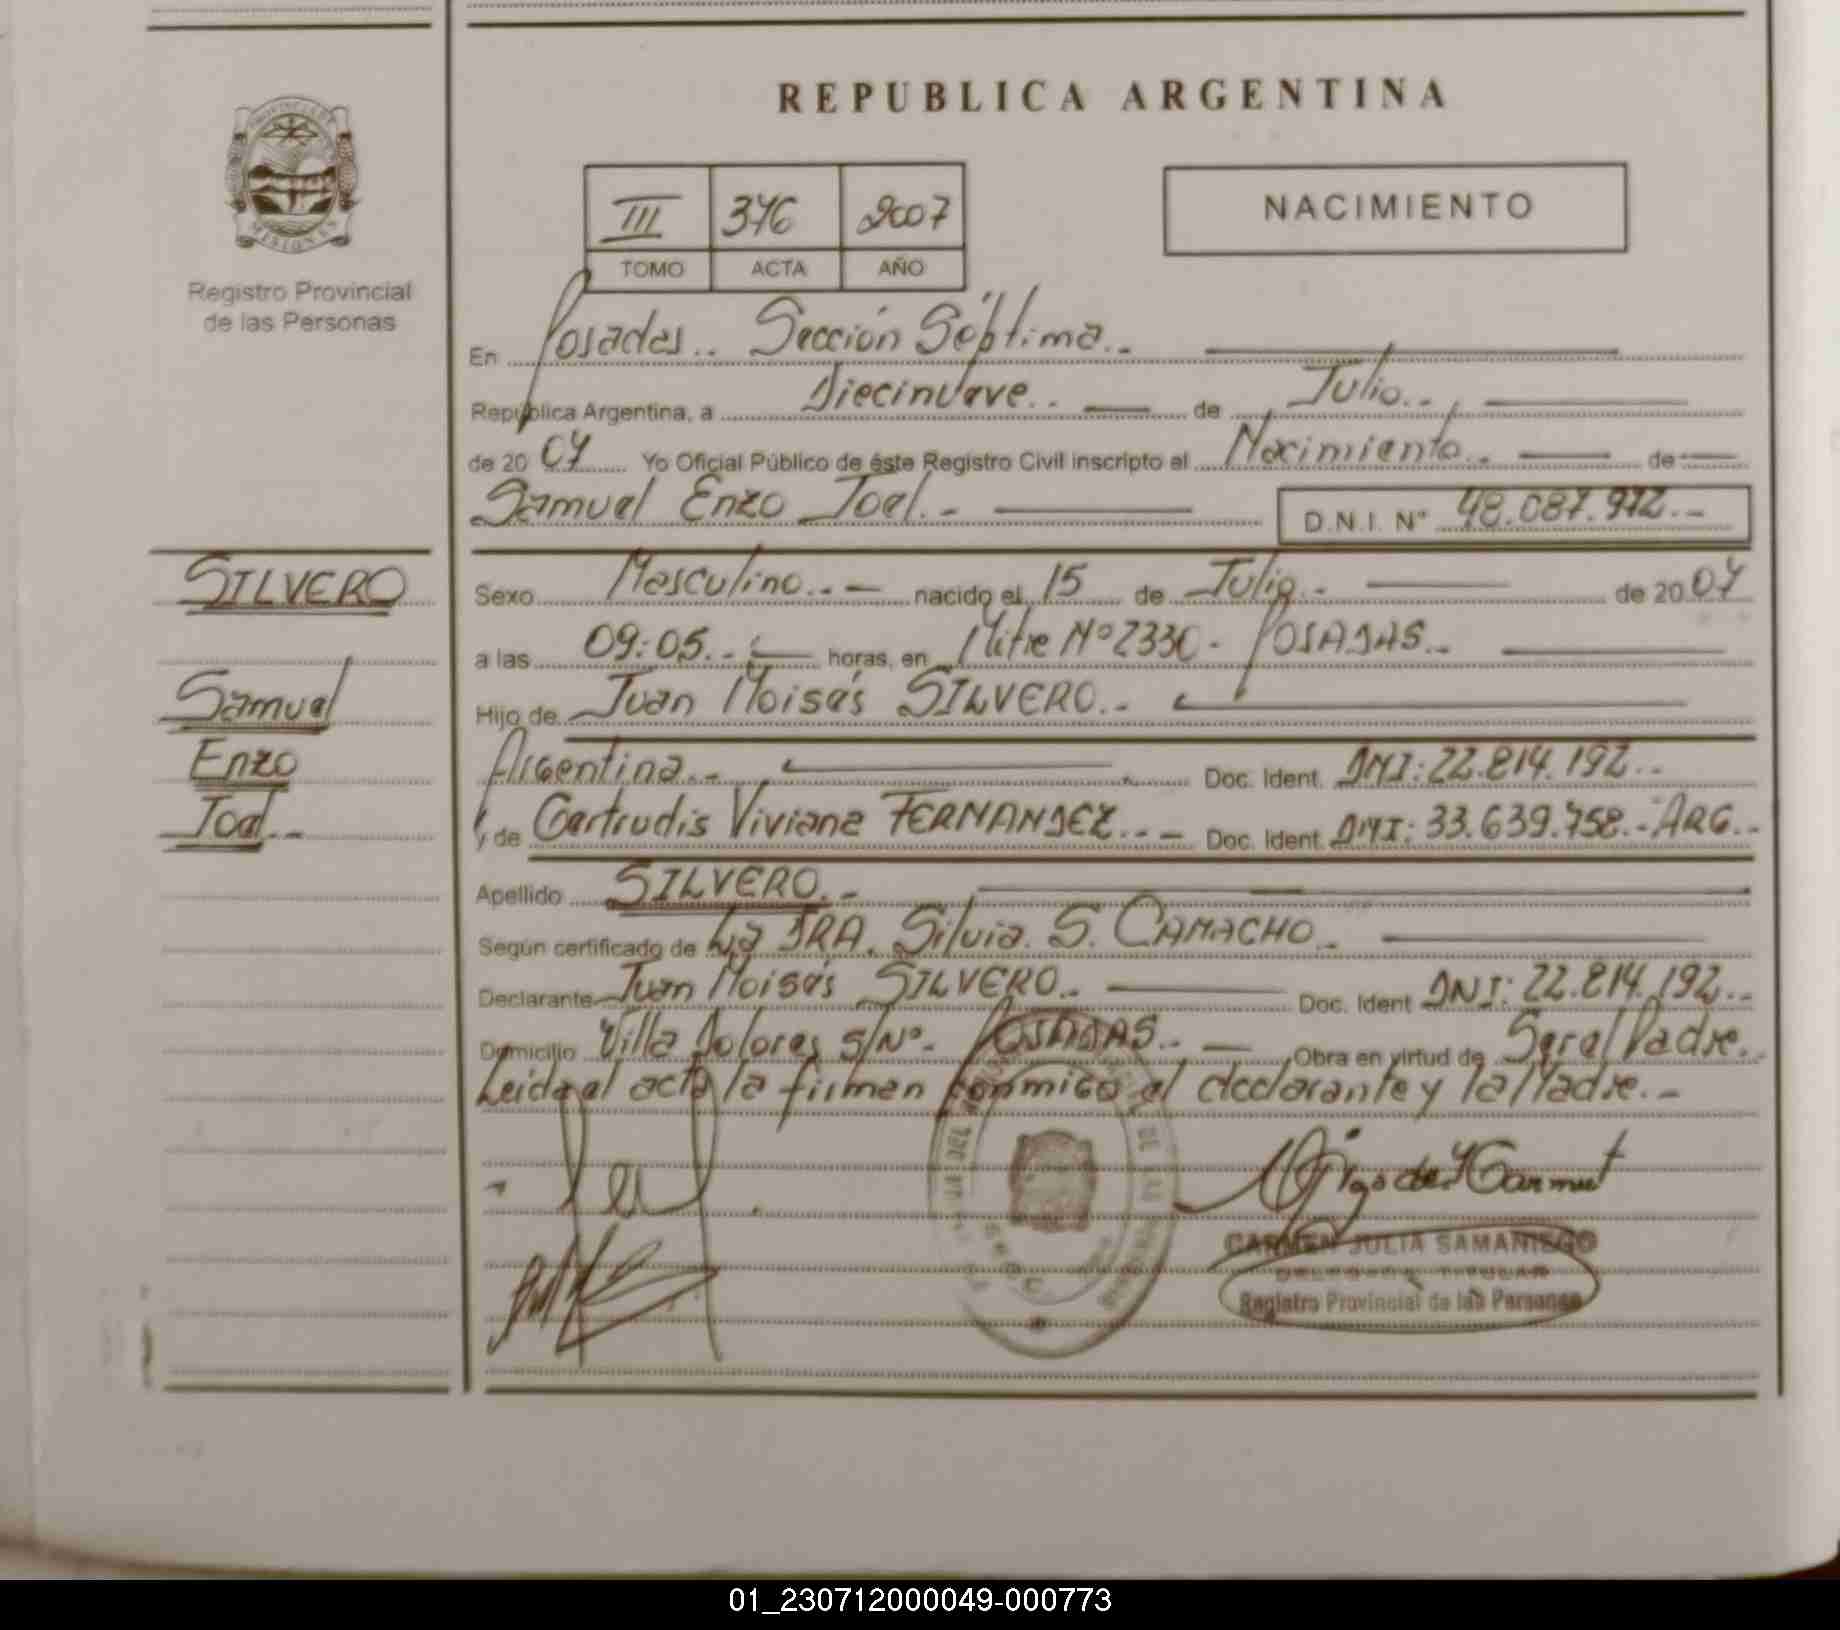 REPUBLICA ARGENTINA
PROVINCIA DE
MISIONES
Registro Provincial
de las Personas
III 376 2007
TOMO ACTA AÑO
NACIMIENTO
En Posadas.. Sección Séptima.-
República Argentina, a Diecinueve.. de Julio..
de 2007 Yo Oficial Público de éste Registro Civil inscripto el Nacimiento.. de
Samuel Enzo Joel.- D.N.I. N° 48.087.972.-
SILVERO
Samuel
Enzo
Joel.-
Sexo Masculino..- nacido el 15 de Julio.- de 2007
a las 09:05.- horas, en Mitre Nº 2330 - POSADAS..
Hijo de Juan Moisés SILVERO..
Argentina.- Doc. Ident. DNI: 22.814.192..
y de Gertrudis Viviana FERNANDEZ..- Doc. Ident. DNI: 33.639.758.- ARG.-
Apellido SILVERO.-
Según certificado de La DRA. Silvia. S. CAMACHO.
Declarante Juan Moisés SILVERO.. Doc. Ident DNI: 22.814.192..
Domicilio Villa Dolores s/Nº- POSADAS.. Obra en virtud de Ser el Padre.
Leida el acta la firman conmigo el declarante y la Madre.-
CARMEN JULIA SAMANIEGO
DELEGADA TITULAR
Registro Provincial de las Personas
01_230712000049-000773